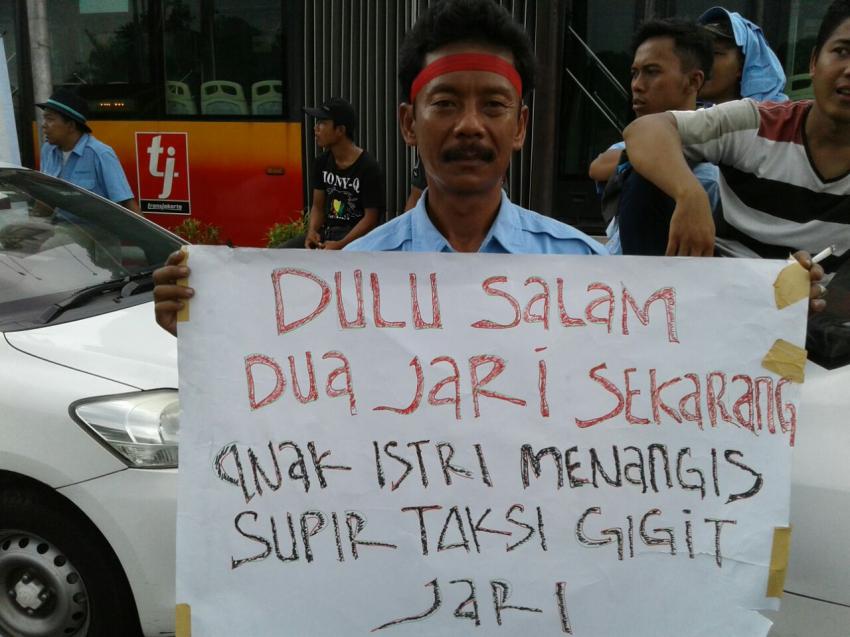 tj
transjakarta
TONY-Q
DULU SALAM
DUA JARI SEKARANG
ANAK ISTRI MENANGIS
SUPIR TAKSI GIGIT
JARI